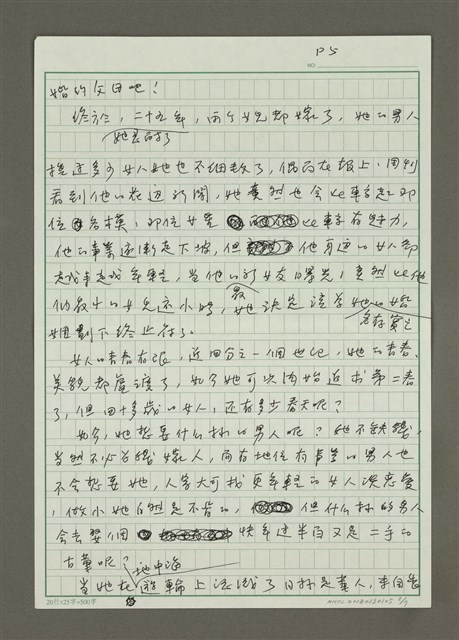 P5
NO.
婚的父母吧！
終於，二十五年，兩个女兒都嫁了，她的男人
她是百
換过多少女人她也不細数了，偶而在报上、周刊
看到他的花边新聞，她竟然也会比較起那
位名模，那位女星比較有魅力，
他的事業逐漸走下坡，但他身边的女人却
越来越年輕，当他的新女友曝光，竟然比他
們最小的女兒还小時，她決定該為她的婚
名存實亡
姻劃下終止符了。
女人的青春有限，近四分之一個世紀，她的青春、
美貌都虛渡了，如今她可以開始追求第二春
了，但四十多歲的女人，还有多少春天呢？
如今，她想要什么样的男人呢？她不缺錢，
当然不必為錢嫁人，而有地位有的男人也
不会想要她，人家大可找更年輕的女人談恋爱
，做小她自然是不肯的，但什么样的男人
会去娶個快年过半百又是二手的
古董呢？
地中海
当她在遊輪上認識了日裔美人，
20行×25字=500字